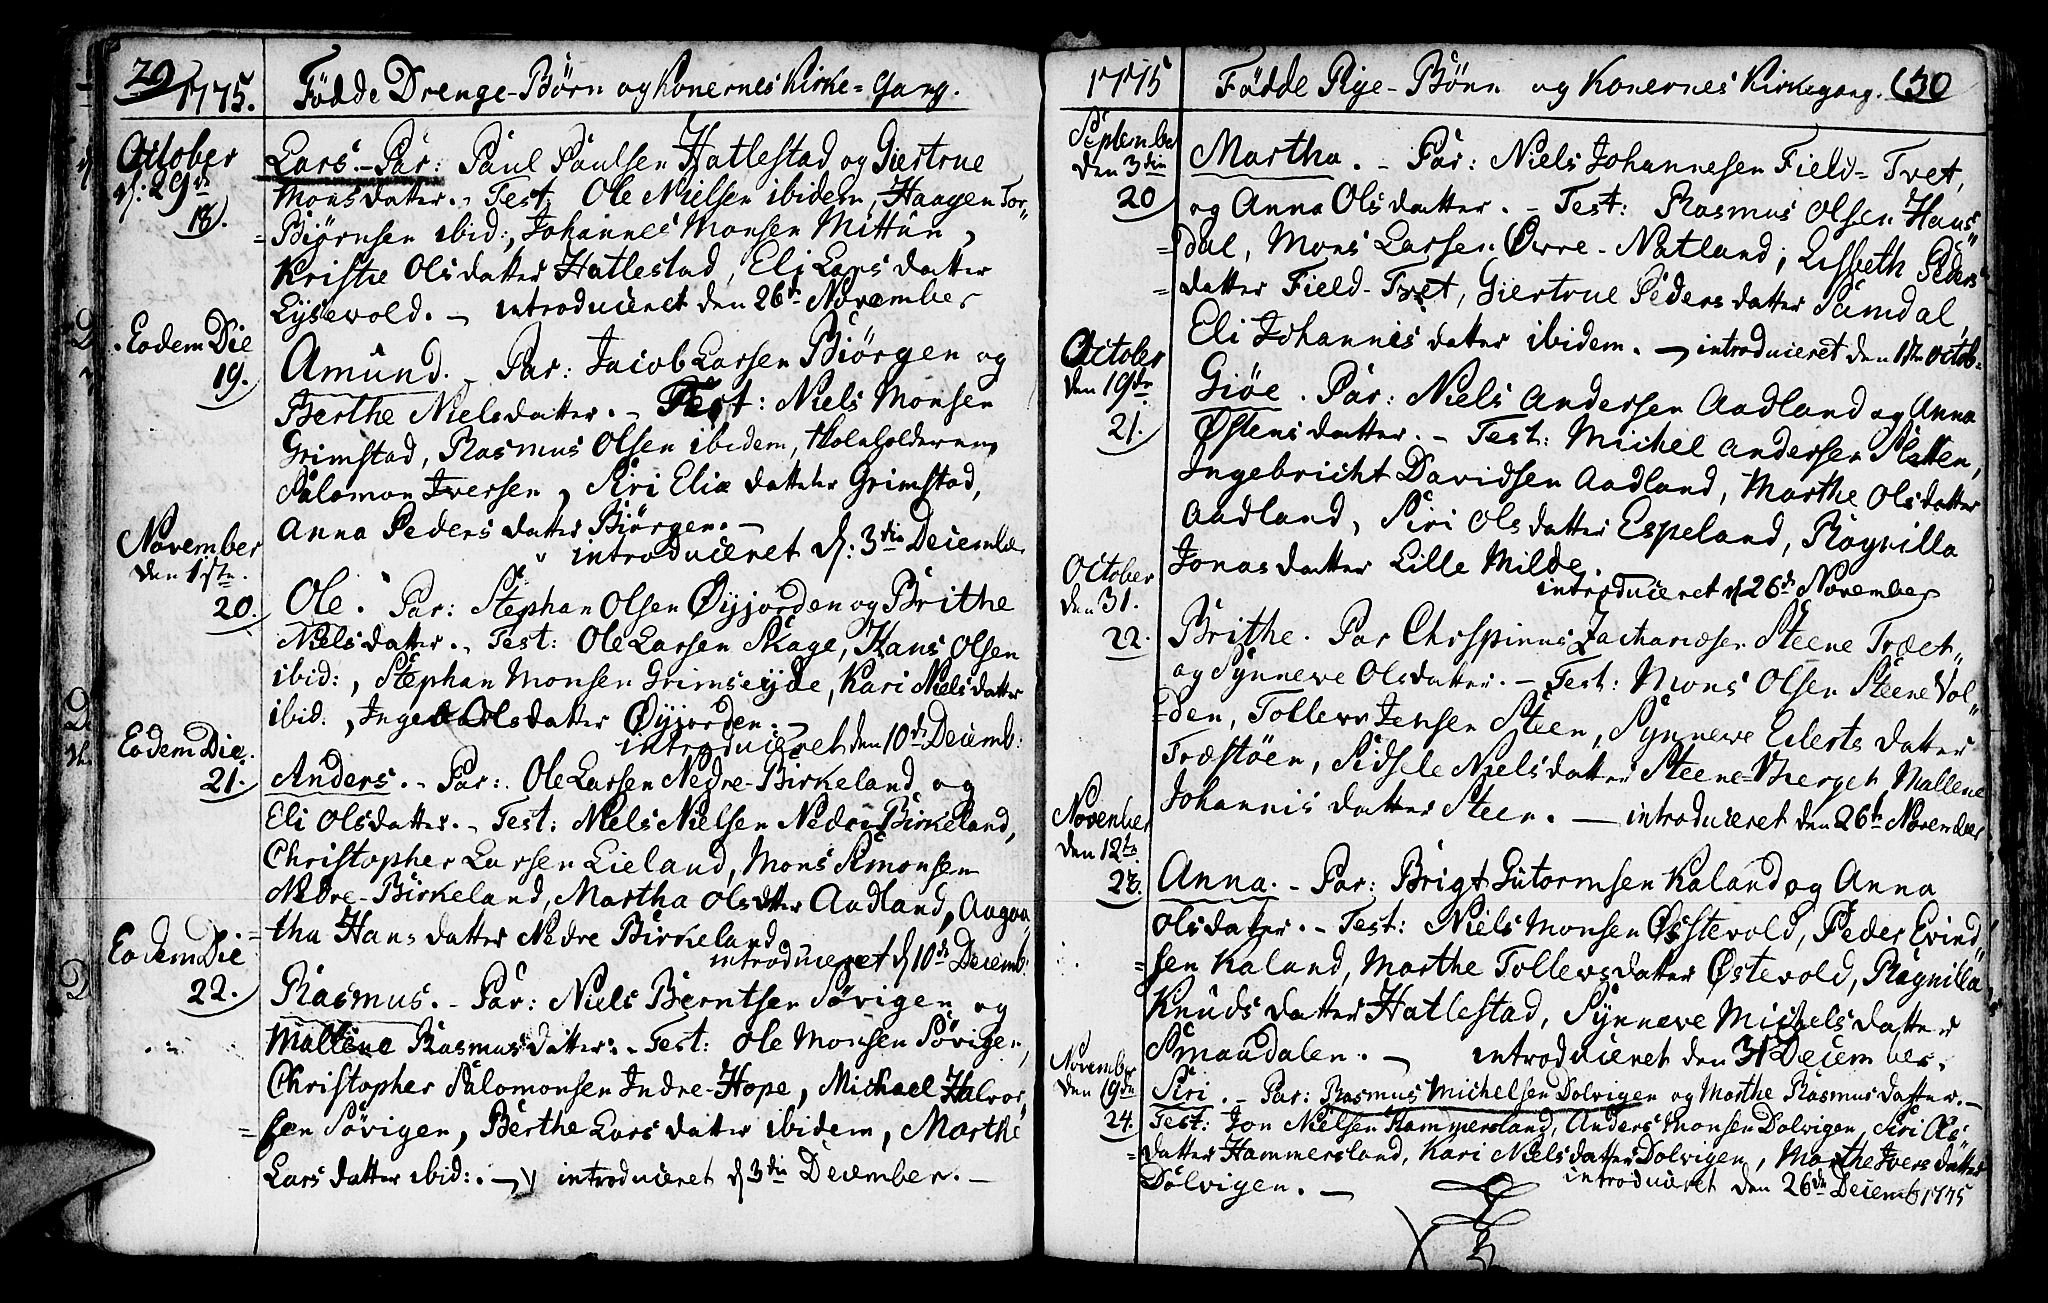 29
1775. Fødde Drenge-Børn og Konernes Kirke=Gang.
October
d: 29de
18.
Lars. - Par: Paul Paulsen Hatlestad og Giertrue
Monsdatter. - Test: Ole Nielsen ibidem, Haagen Tor„
=Biørnsen ibid:, Johannes Monsen Mittun,
Kristie Olsdatter Hatlestad, Eli Larsdatter
Lysevold. - introduceret den 26de November
Eodem Die
19.
Amund. - Par: Jacob Larsen Biørgen og
Berthe Nielsdatter. - Test: Niels Monsen
Grimstad, Rasmus Olsen ibidem, Skoleholderen,
Salomon Iversen, Siri Eliædatter Grimstad,
Anna Pedersdatter Biørgen. -
introduceret d: 3die December
November
den 1ste.
20.
Ole. Par: Stephan Olsen Øyjorden og Brithe
Nielsdatter. - Test: Ole Larsen Skage, Hans Olsen
ibid:, Stephan Monsen Grimseyde, Kari Nielsdatter
ibid:, Ingebor Olsdatter Øyjorden. -
introduceret den 10de Decemb:
Eodem Die.
21.
Anders. - Par: Ole Larsen Nedre-Birkeland og
Eli Olsdatter. - Test: Niels Nielsen Nedre Birkeland,
Christopher Larsen Lieland, Mons Simonsen
Nedre-Birkeland, Martha Olsdatter Aadland, Aagaa„
=tha Hansdatter Nedre Birkeland
introduceret d 10de Decemb:
Eodem Die
22.
Rasmus. - Par: Niels Berntsen Søvigen og
Mallene Rasmusdatter. - Test: Ole Monsen Søvigen,
Christopher Salomonsen Indre-Hope, Michael Halvor„
=sen Søvigen, Berthe Larsdatter ibidem, Marthe
Larsdatter ibid:. - introduceret d 3die December. -
1775 Fødde Pige-Børn og Konernes Kirkegang. (30
September
den 3die
20
Martha. - Par: Niels Johannesen Field=Tvet,
og Anna Olsdatter. - Test: Rasmus Olsen Haus„
=dal, Mons Larsen Øvre-Natland, Lisbeth Peders„
=datter Field-Tvet, Giertrue Pedersdatter Samdal,
Eli Johannisdatter ibidem. - introduceret den 1ste Octob:
October
den 19de
21.
Giøe. Par: Niels Andersen Aadland og Anna
Østensdatter. - Test: Michel Andersen Sletten,
Ingebricht Davidsen Aadland, Marthe Olsdatter
Aadland, Siri Olsdatter Espeland, Ragnilla
Jonasdatter Lille Milde.
introduceret d 26de November
October
den 31.
22.
Brithe. Par Chrispinus Zachariæsen Steene Træet„
og Synneve Olsdatter. - Test: Mons Olsen Steene Vol„
=den, Tollev Jensen Steen, Synneve Eilertsdatter
Træstøen, Sidsele Nielsdatter Steene-Bierget, Mallene
Johannisdatter Steen. - introduceret den 26de November
November
den 12te
23.
Anna. - Par: Brigt Gutormsen Kaland og Anna
Olsdatter. - Test: Niels Monsen Østevold, Peder Evind„
=sen Kaland, Marthe Tollevsdatter Østevold, Ragnilla
Knudsdatter Hatlestad, Synneve Michelsdatter
Smaadalen. - introduceret den 31 December.
November
den 19de
24.
Siri. - Par: Rasmus Michelsen Dolvigen og Marthe Rasmusdatter. -
Test: Jon Nielsen Hammersland, Anders Monsen Dolvigen, Siri Ols„
=datter Hammersland, Kari Nielsdatter Dolvigen, Marthe Iversdatter
Dolvigen. - introduceret den 26de Decemb 1775